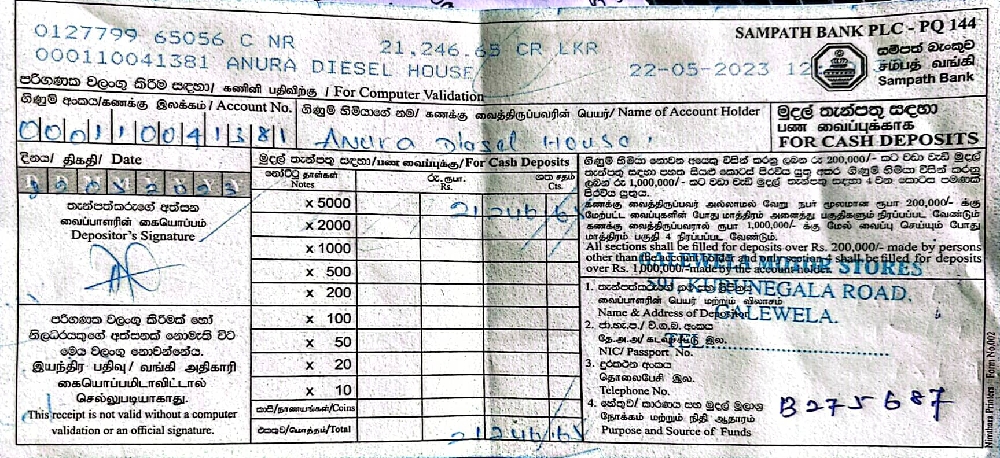 SAMPATH BANK PLC - PQ 144
0127799 65056 C NR 21,246.65 CR LKR
000110041381 ANURA DIESEL HOUSE 22-05-2023
සම්පත් බැංකුව
சம்பத் வங்கி
Sampath Bank
පරිගණක වලංගු කිරීම සඳහා / கணினி பதிவிற்கு / For Computer Validation
ගිණුම් අංකය/கணக்கு இலக்கம் / Account No. ගිණුම් හිමියාගේ නම/ கணக்கு வைத்திருப்பவரின் பெயர்/ Name of Account Holder
000110041381 Anura Diesel House.
මුදල් තැන්පතු සඳහා
பண வைப்புக்காக
FOR CASH DEPOSITS
දිනය/ திகதி/ Date
තැන්පත්කරුගේ අත්සන
வைப்பாளரின் கையொப்பம்
Depositor's Signature
පරිගණක වලංගු කිරීමක් හෝ
නිලධරයකුගේ අත්සනක් නොමැති විට
මෙය වලංගු නොවන්නේය.
இயந்திர பதிவு / வங்கி அதிகாரி
கையொப்பமிடாவிட்டால்
செல்லுபடியாகாது.
This receipt is not valid without a computer
validation or an official signature.
මුදල් තැන්පතු සඳහා/பண வைப்புக்கு/For Cash Deposits
නෝට්ටු தாள்கள் Notes
රු. ரூபா. Rs.
ශත சதம் Cts.
x 5000 21246/65
x 2000
x 1000
x 500
x 200
x 100
x 50
x 20
x 10
කාසි/நாணயங்கள்/Coins
එකතුව/மொத்தம்/Total 21246/65
ගිණුම් හිමියා නොවන අයෙකු විසින් කරනු ලබන රු 200,000/- කට වඩා වැඩි මුදල්
தැන්පතු සඳහා
රු 1,000,000/- කට වඩා වැඩි මුදල් තැන්පතු සඳහා 4 වන කොටස පමණක්
பிரිවිය යුතුය.
கணக்கு வைத்திருப்பவர் அல்லாமல் வேறு நபர் மூலமான ரூபா 200,000/- க்கு
மேற்பட்ட வைப்புகளின் போது மாத்திரம் அனைத்து பகுதிகளும் நிரப்பப்பட வேண்டும்
கணக்கு வைத்திருப்பவரால் ரூபா 1,000,000/- க்கு மேல் வைப்பு செய்யும் போது
மாத்திரம் பகுதி 4 நிரப்பப்பட வேண்டும்.
All sections shall be filled for deposits over Rs. 200,000/- made by persons
other than the account holder and only section 4 shall be filled for deposits
over Rs. 1,000,000/- made by the account holder
GALEWELA MOTOR STORES
KURUNEGALA ROAD.
GALEWELA.
TEL:
1.
வைப்பாளரின் பெயர் மற்றும் விலாசம்
Name & Address of Depositor
2. ජා.හැ.ප. / වි.ග.බ. අංකය
தே.அ.அ/ கடவுச்சீட்டு இல.
NIC/ Passport No.
3. දුරකථන අංකය
தொலைபேசி இல.
Telephone No.
4. හේතුව/ காரணය සහ මුදල් මූලාශ්‍ර
நோக்கம் மற்றும் நிதி ஆதாரம்
Purpose and Source of Funds
B275687